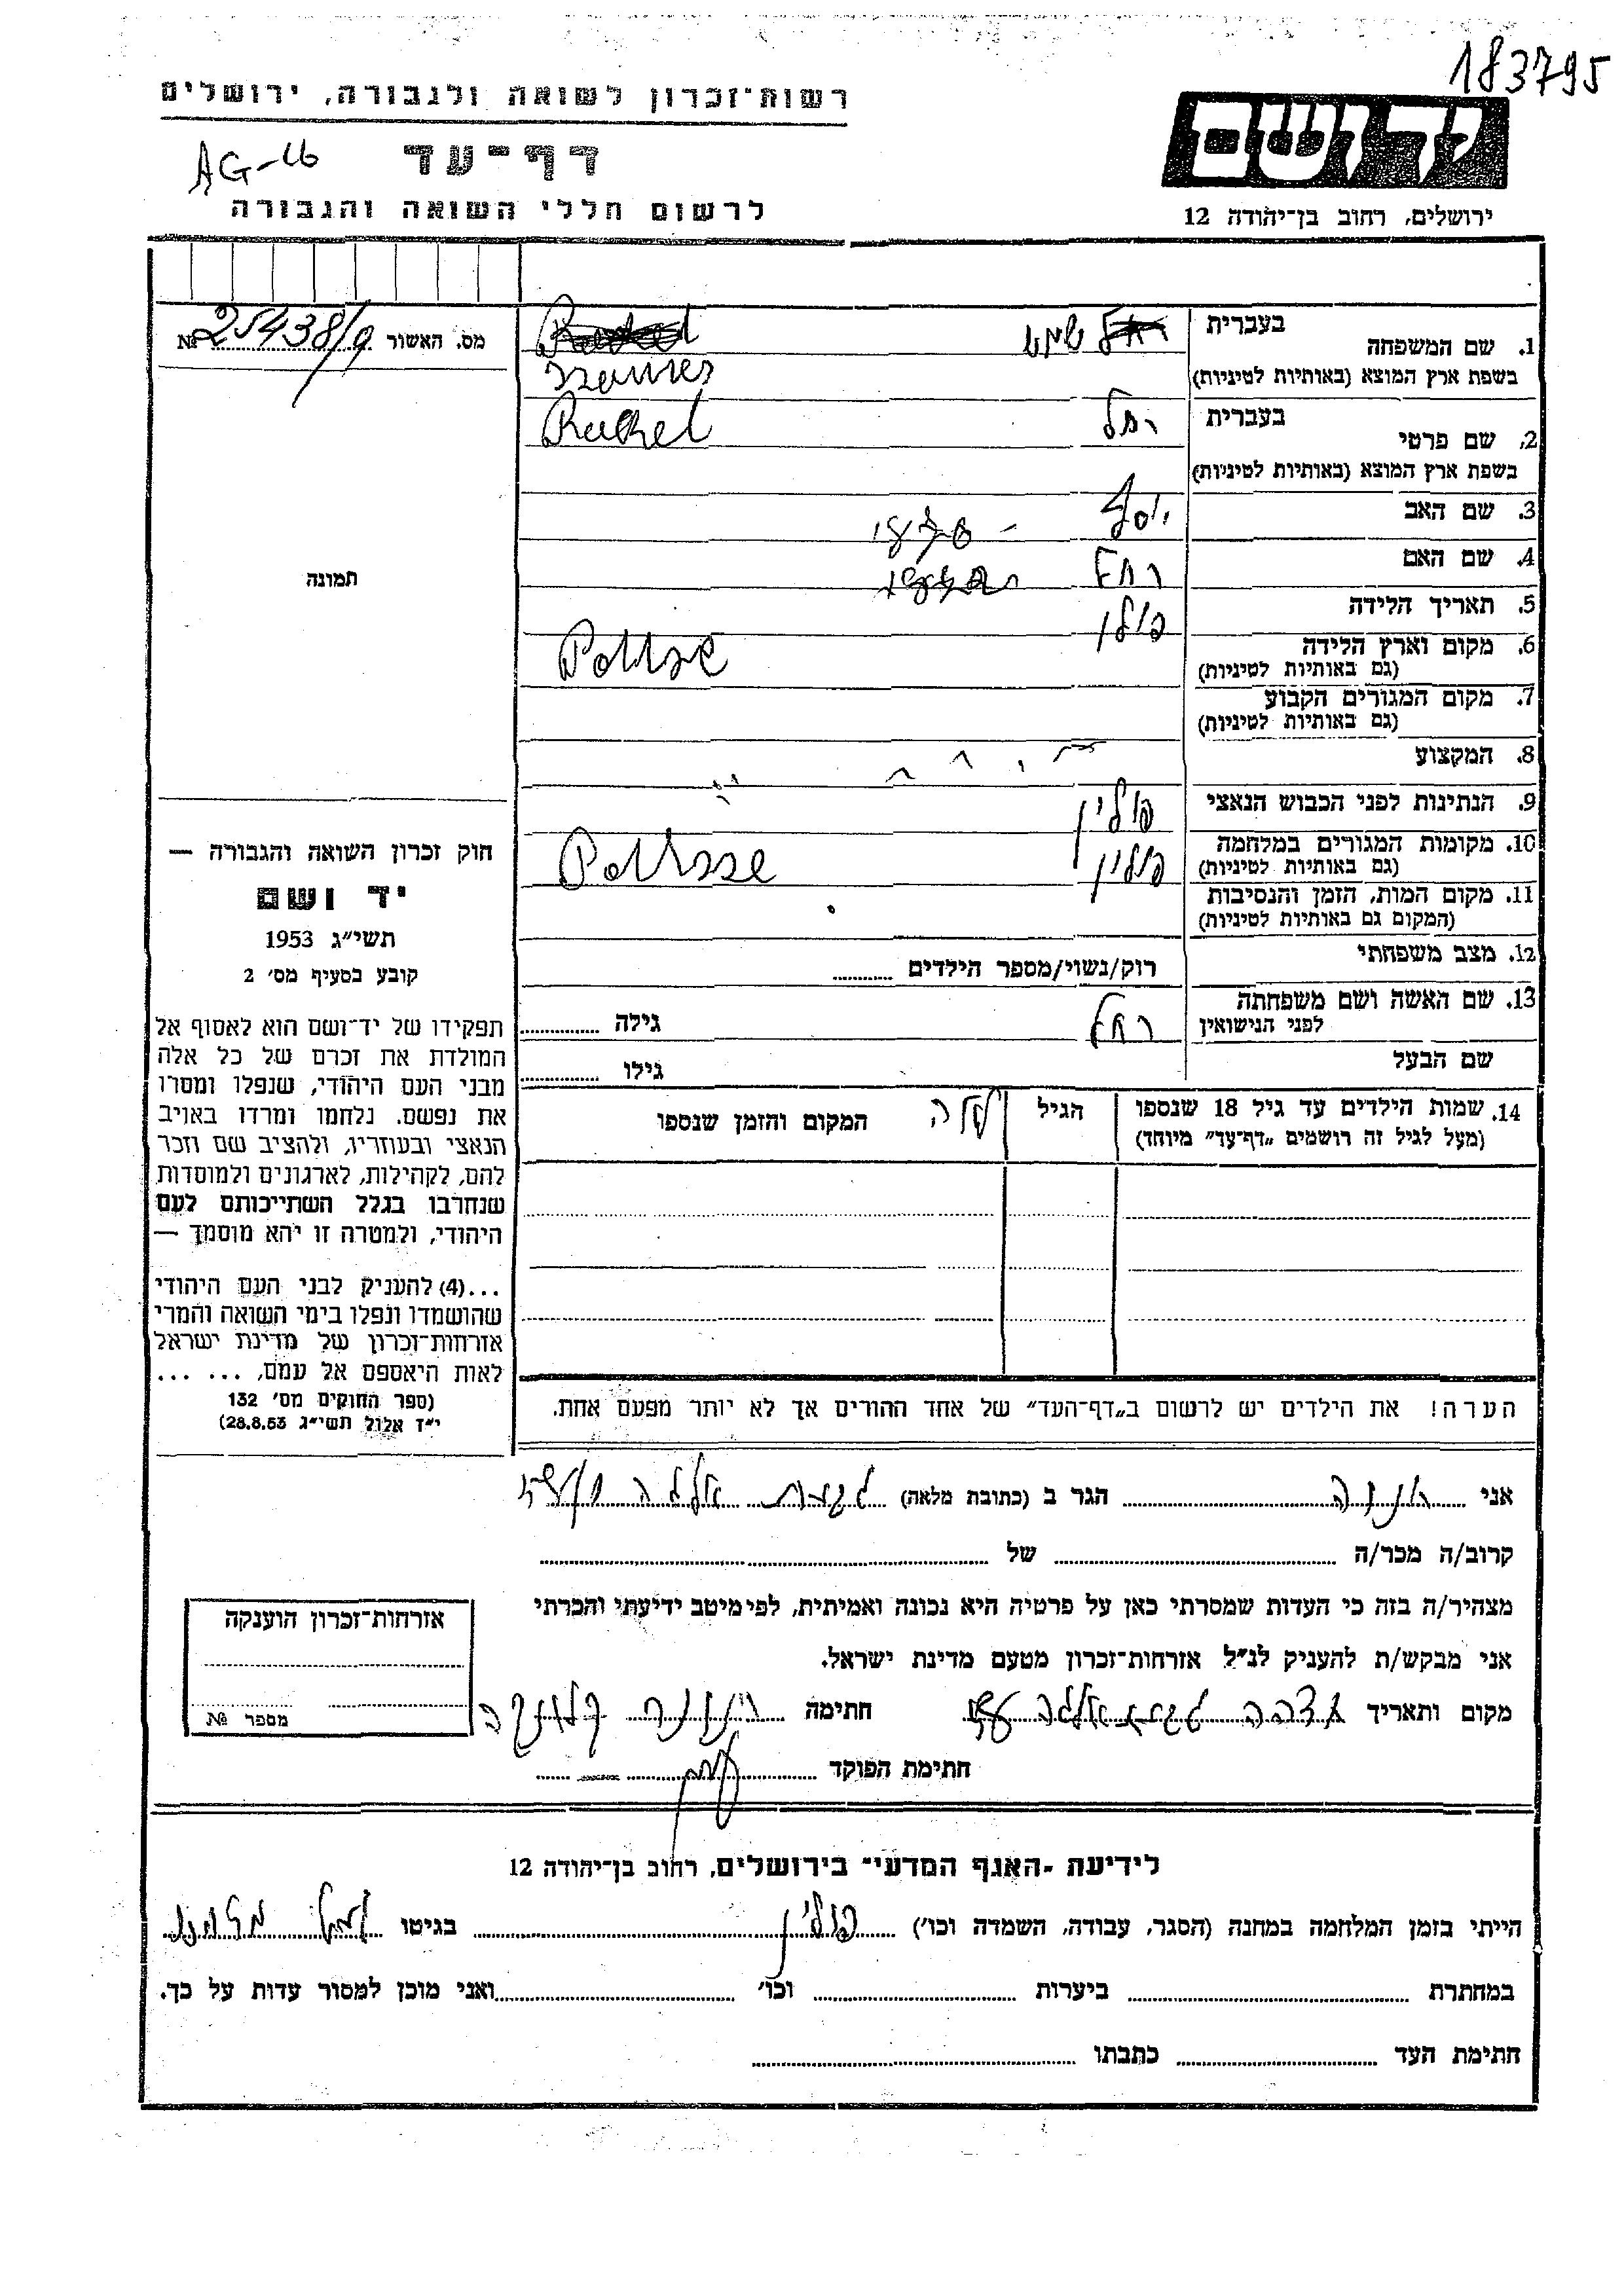 183795
רשות־זכרון לשואה ולגבורה, ירושלים
ידושם
AG-16
דף־עד
לרשום חללי השואה והגבורה
ירושלים, רחוב בן־יהודה 12
בעברית
1. שם המשפחה
בשפת ארץ המוצא (באותיות לטיניות)
מס. האשור № 25438/9
2. שם פרטי
בעברית
רחל
Rachel
בשפת ארץ המוצא (באותיות לטיניות)
3. שם האב
יוסף
4. שם האם
5. תאריך הלידה
6. מקום וארץ הלידה
(גם באותיות לטיניות)
פולין
7. מקום המגורים הקבוע
(גם באותיות לטיניות)
8. המקצוע
9. הנתינות לפני הכבוש הנאצי
פולין
10. מקומות המגורים במלחמה
(גם באותיות לטיניות)
פולין
11. מקום המות, הזמן והנסיבות
(המקום גם באותיות לטיניות)
12. מצב משפחתי
רוק/נשוי/מספר הילדים
13. שם האשה ושם משפחתה
לפני הנישואין
רחל
גילה
שם הבעל
גילו
14. שמות הילדים עד גיל 18 שנספו
(מעל לגיל זה רושמים „דף־עד" מיוחד)
הגיל
המקום והזמן שנספו
הערה! את הילדים יש לרשום ב„דף־העד" של אחד ההורים אך לא יותר מפעם אחת.
תמונה
חוק זכרון השואה והגבורה —
יד ושם
תשי״ג 1953
קובע בסעיף מס׳ 2
תפקידו של יד־ושם הוא לאסוף אל
המולדת את זכרם של כל אלה
מבני העם היהודי, שנפלו ומסרו
את נפשם. נלחמו ומרדו באויב
הנאצי ובעוזריו, ולהציב שם וזכר
להם, לקהילות, לארגונים ולמוסדות
שנחרבו בגלל השתייכותם לעם
היהודי, ולמטרה זו יהא מוסמך —
...(4) להעניק לבני העם היהודי
שהושמדו ונפלו בימי השואה והמרי
אזרחות־זכרון של מדינת ישראל
לאות היאספם אל עמם, ... ...
(ספר החוקים מס׳ 132
י״ז אלול תשי״ג 28.8.53)
אני
הגר ב (כתובת מלאה)
קרוב/ה מכר/ה
של
מצהיר/ה בזה כי העדות שמסרתי כאן על פרטיה היא נכונה ואמיתית, לפי מיטב ידיעתי והכרתי
אני מבקש/ת להעניק לנ״ל אזרחות־זכרון מטעם מדינת ישראל.
מקום ותאריך
חתימה
חתימת הפוקד
אזרחות־זכרון הוענקה
מספר №
לידיעת „האגף המדעי" בירושלים, רחוב בן־יהודה 12
הייתי בזמן המלחמה במחנה (הסגר, עבודה, השמדה וכו׳) פולין בגיטו
במחתרת ביערות וכו׳ ואני מוכן למסור עדות על כך.
חתימת העד כתבתו